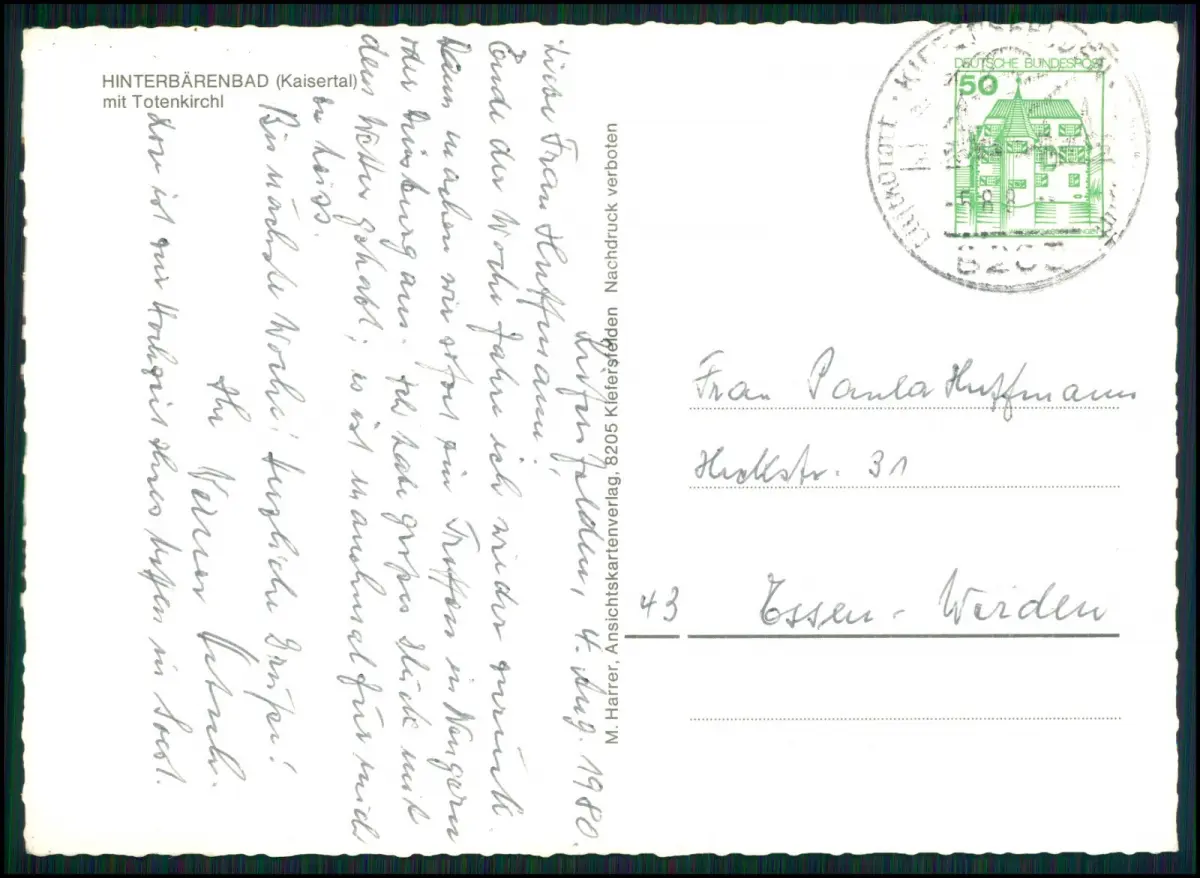 HINTERBÄRENBAD (Kaisertal)
mit Totenkirchl
Kiefersfelden, 4. Aug. 1980.
Liebe Frau Huffmann!,
Ende der Woche fahre ich wieder zurück.
Dann machen wir sofort ein Treffen in Wengern
oder Duisburg aus. Ich habe großes Glück mit
dem Wetter gehabt; es ist manchmal für mich
zu heiss.
Bis nächste Woche! herzliche Grüße!
Ihr Werner
Lore ist zur Hochzeit ihres in Soest.
M. Harrer, Ansichtskartenverlag, 8205 Kiefersfelden Nachdruck verboten
DEUTSCHE BUNDESPOST
50
KIEFERSFELDEN
Luftkurort
8205
Frau Paula Huffmann
Heckstr. 31
43 Essen-Werden